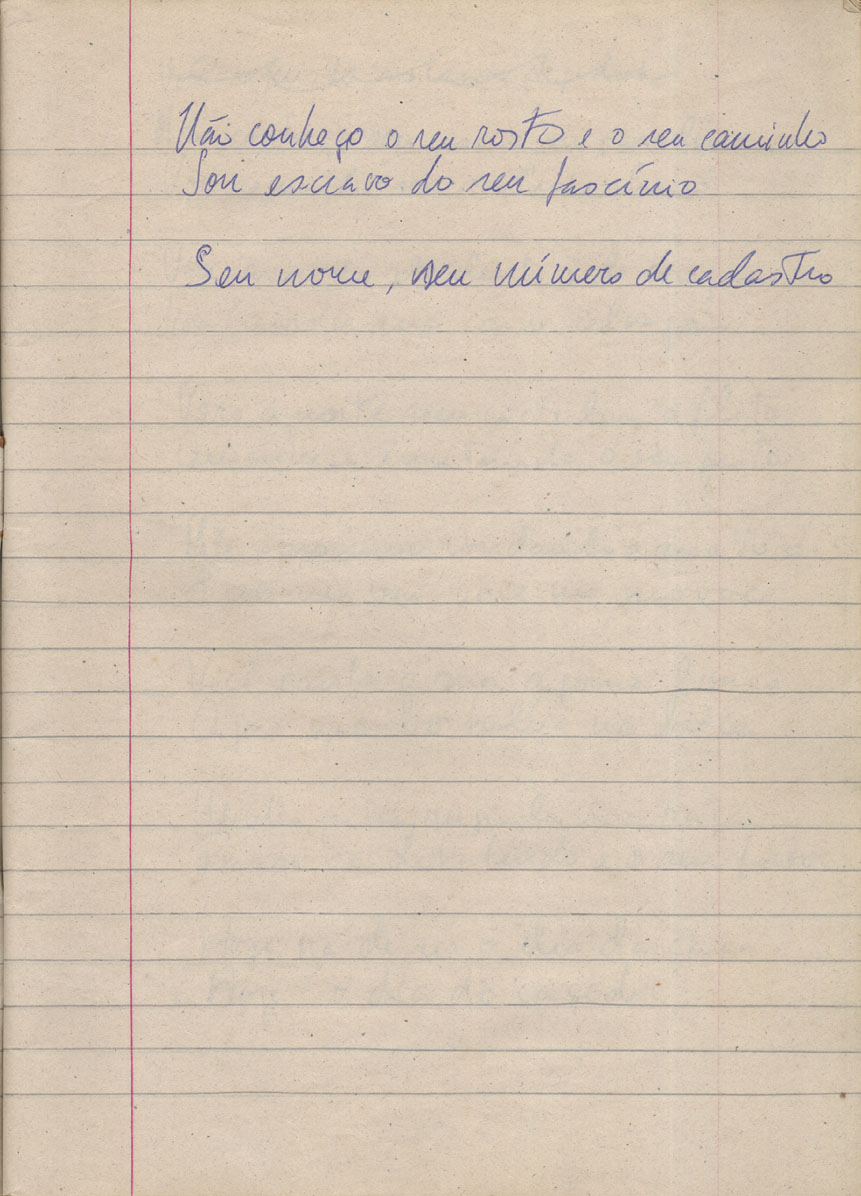 Não conheço o seu rosto e o seu caminho
Sou escravo do seu fascínio
Seu nome, seu número de cadastro